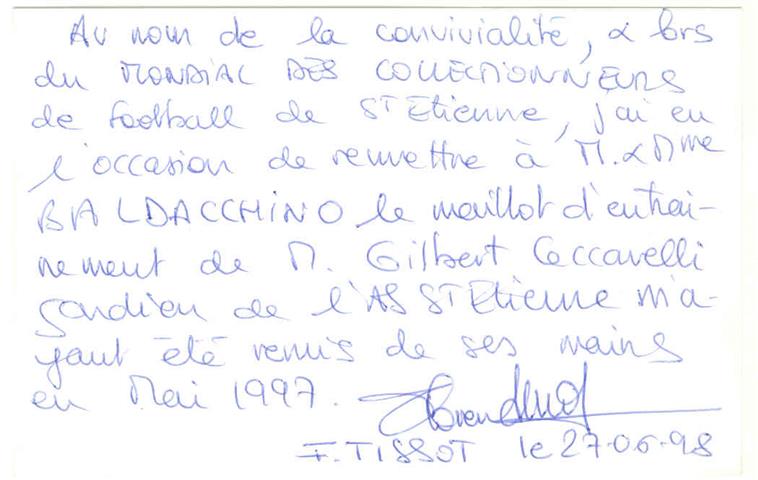 Au nom de la convivialité, & lors
du MONDIAL DES COLLECTIONNEURS
de football de ST Etienne, j'ai eu
l'occasion de remettre à M. & Mme
BALDACCHINO le maillot d'entrai-
nement de M. Gilbert Ceccarelli
gardien de l'AS ST Etienne m'a-
yant été remis de ses mains
en Mai 1997.
F. TISSOT le 27-06-98